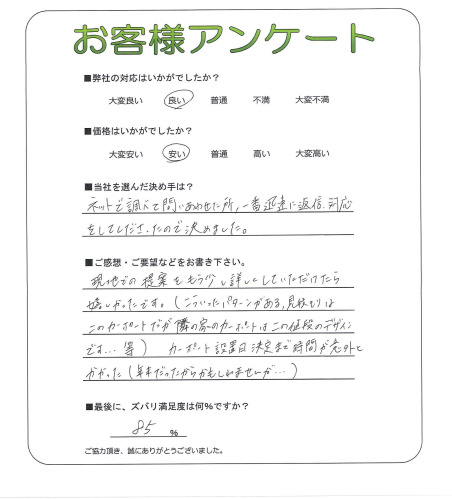 お客様アンケート
■弊社の対応はいかがでしたか？
大変良い 良い 普通 不満 大変不満
■価格はいかがでしたか？
大変安い 安い 普通 高い 大変高い
■当社を選んだ決め手は？
ネットで調べて問いあわせた所、一番迅速に返信、対応
をしてくださったので決めました。
■ご感想・ご要望などをお書き下さい。
現地での提案をもう少し詳しくしていただけたら
嬉しかったです。（こういったパターンがある、見積もりは
このカーポートだが隣の家のカーポートはこの値段のデザイン
です…等） カーポート設置日決定まで時間が意外と
かかった（年末だったからかもしれませんが…）
■最後に、ズバリ満足度は何％ですか？
85 ％
ご協力頂き、誠にありがとうございました。